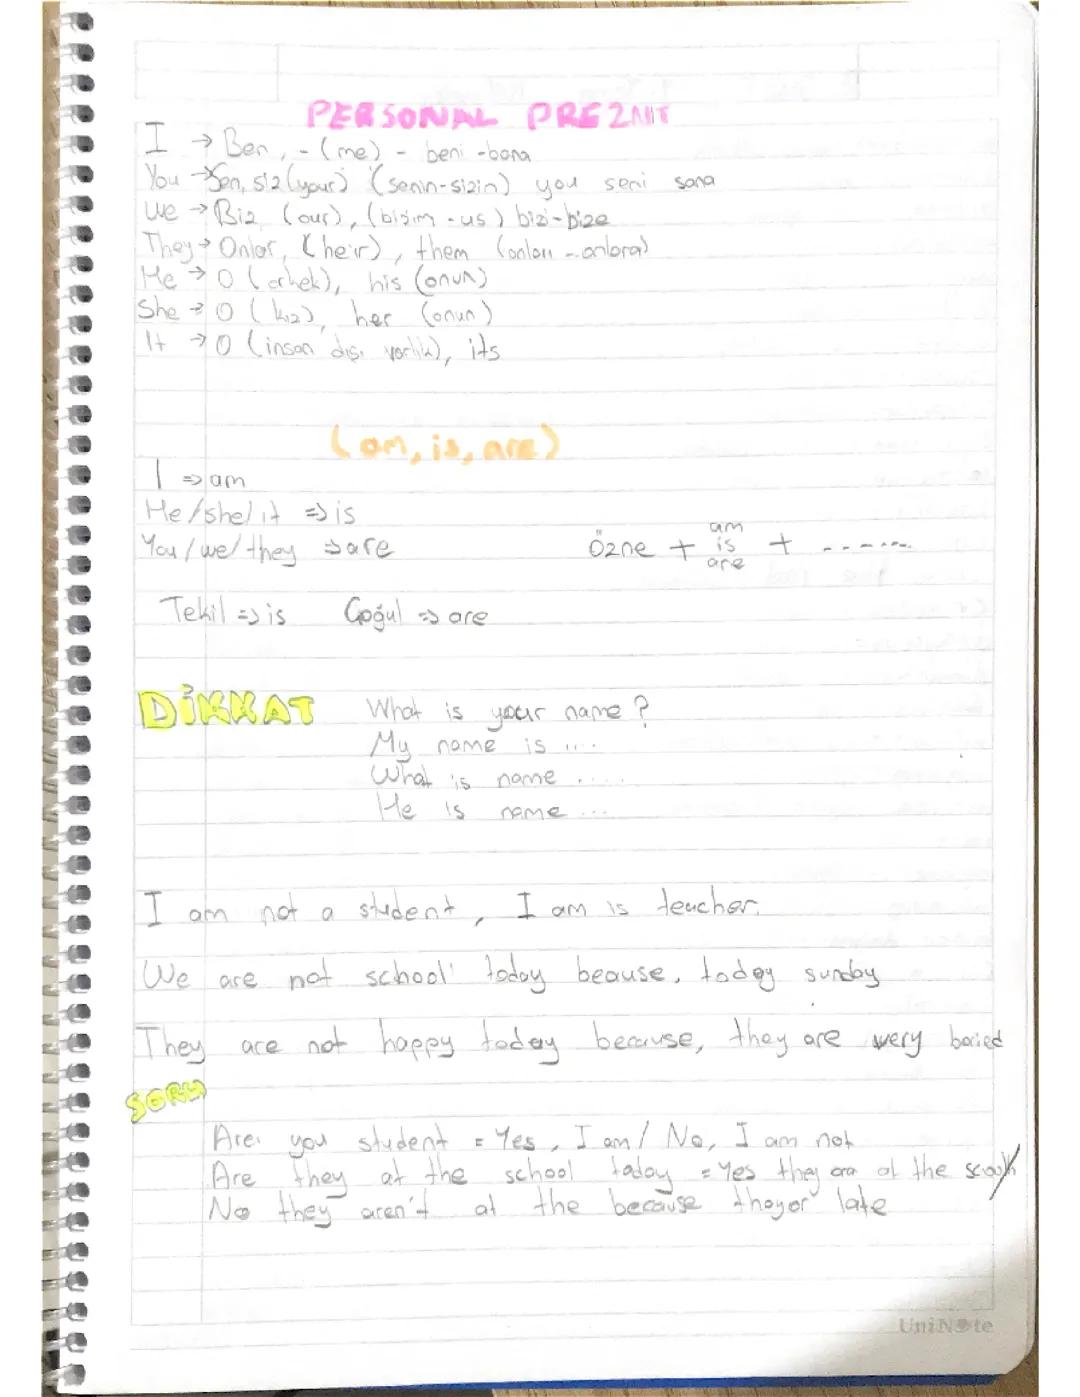 PERSONAL PREZNIT
I → Ben, - (me) - beni - bana
You → Sen, siz (your) (senin-sizin) you seni sana
We → Biz (our), (bizim - us) bizi-bize
They → Onlar, (heir), them (onları - onlara)
He → O (erkek), his (onun)
She → O (kız), her (onun)
It → O (insan dışı varlık), its
(am, is, are)
I => am
He/she/it => is
You/we/they => are
Özne + am is are + ......
Tekil => is Çoğul => are
DİKKAT What is your name?
My name is ....
What is name .....
He is name ...
I am not a student, I am is teacher.
We are not school' today beause, today sunday
They are not happy today because, they are very boried
SORU
Are you student = Yes, I am / No, I am not
Are they at the school today = Yes they are at the
No they aren't at the because late
UniNote